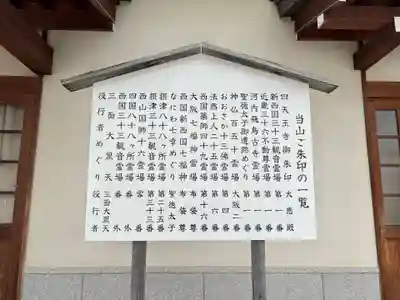 当山ご朱印の一覧
四天王寺御朱印 大悲殿
新西国三十三観音霊場 第一番
近畿三十六不動尊霊場 第一番
河内飛鳥古寺霊場 第一番
聖徳太子御遺跡めぐり 第一番
神仏百五十霊場 大阪二番
おおさか十三佛霊場 第四番
法然上人二十五霊場 第六番
西国薬師四十九霊場 第十六番
大阪七福神霊場 布袋尊
西国新西国七福神 布袋尊
なにわ七幸めぐり 聖徳太子
摂津八十八ヶ所霊場 第二十五番
摂津三十三観音霊場 第三十三番
西山国師十六霊場 客番
四国八十八ヶ所霊場 番外
西国三十三観音霊場 番外
三面大黒天 三面大黒天
役行者めぐり 役行者